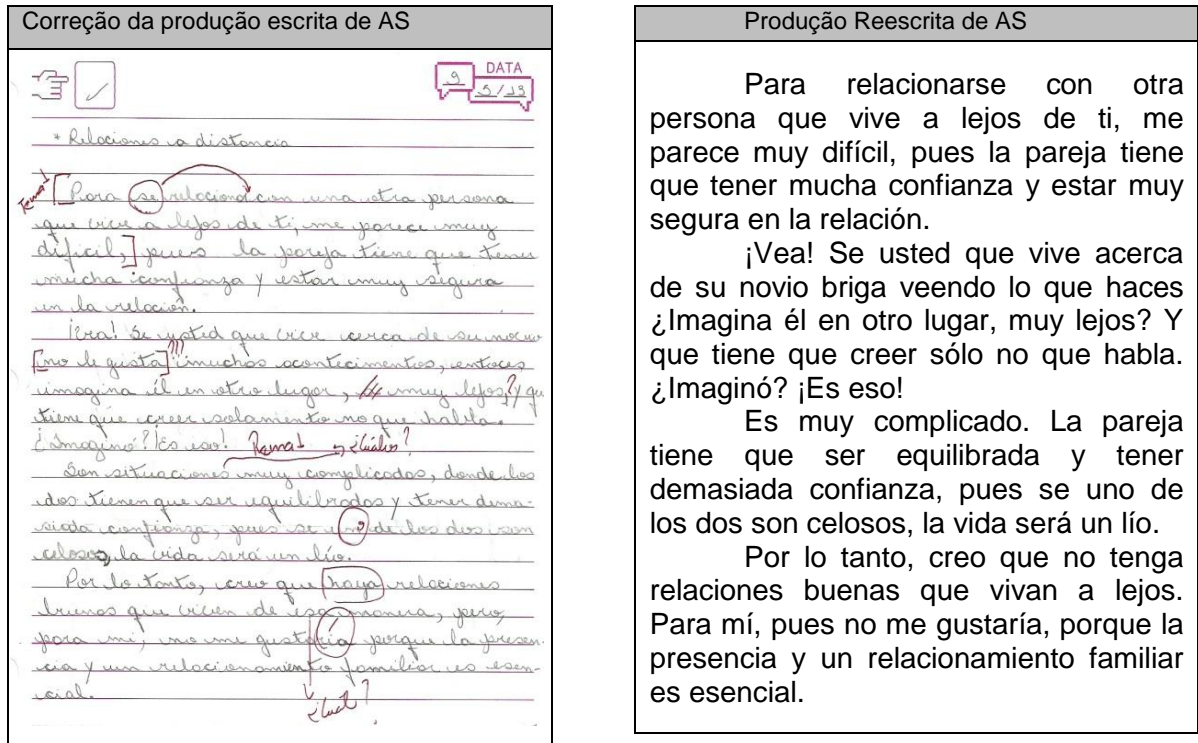 Correção da produção escrita de AS
DATA
9 5/13
* Relaciones a distancia
Tema 1 [Para se relacionar con una otra persona
que vive a lejos de ti, me parece muy
dificil,] pues la pareja tiene que tener
mucha confianza y estar muy segura
en la relación.
¡Vea! Se usted que vive cerca de su novio
[no le gusta] ??? muchos acontecimentos, entoces
imagina él en otro lugar, muy lejos? y que
tiene que creer solamiento no que habla.
¿Imaginó? ¡Es eso! Rema 1 ¿Cuáles?
Son situaciones muy complicadas, donde los
dos tienen que ser equilibrados y tener dema-
siada confianza, pues se uno de los dos son
celosos, la vida será un lío.
Por lo tanto, creo que haya relaciones
buenas que viven de esa manera, pero,
para mi, no me gustaría porque la presen-
cia y un relacionamiento familiar es esen-
cial.
¿Cuál?
Produção Reescrita de AS
Para relacionarse con otra
persona que vive a lejos de ti, me
parece muy difícil, pues la pareja tiene
que tener mucha confianza y estar muy
segura en la relación.
¡Vea! Se usted que vive acerca
de su novio briga veendo lo que haces
¿Imagina él en otro lugar, muy lejos? Y
que tiene que creer sólo no que habla.
¿Imaginó? ¡Es eso!
Es muy complicado. La pareja
tiene que ser equilibrada y tener
demasiada confianza, pues se uno de
los dos son celosos, la vida será un lío.
Por lo tanto, creo que no tenga
relaciones buenas que vivan a lejos.
Para mí, pues no me gustaría, porque la
presencia y un relacionamiento familiar
es esencial.